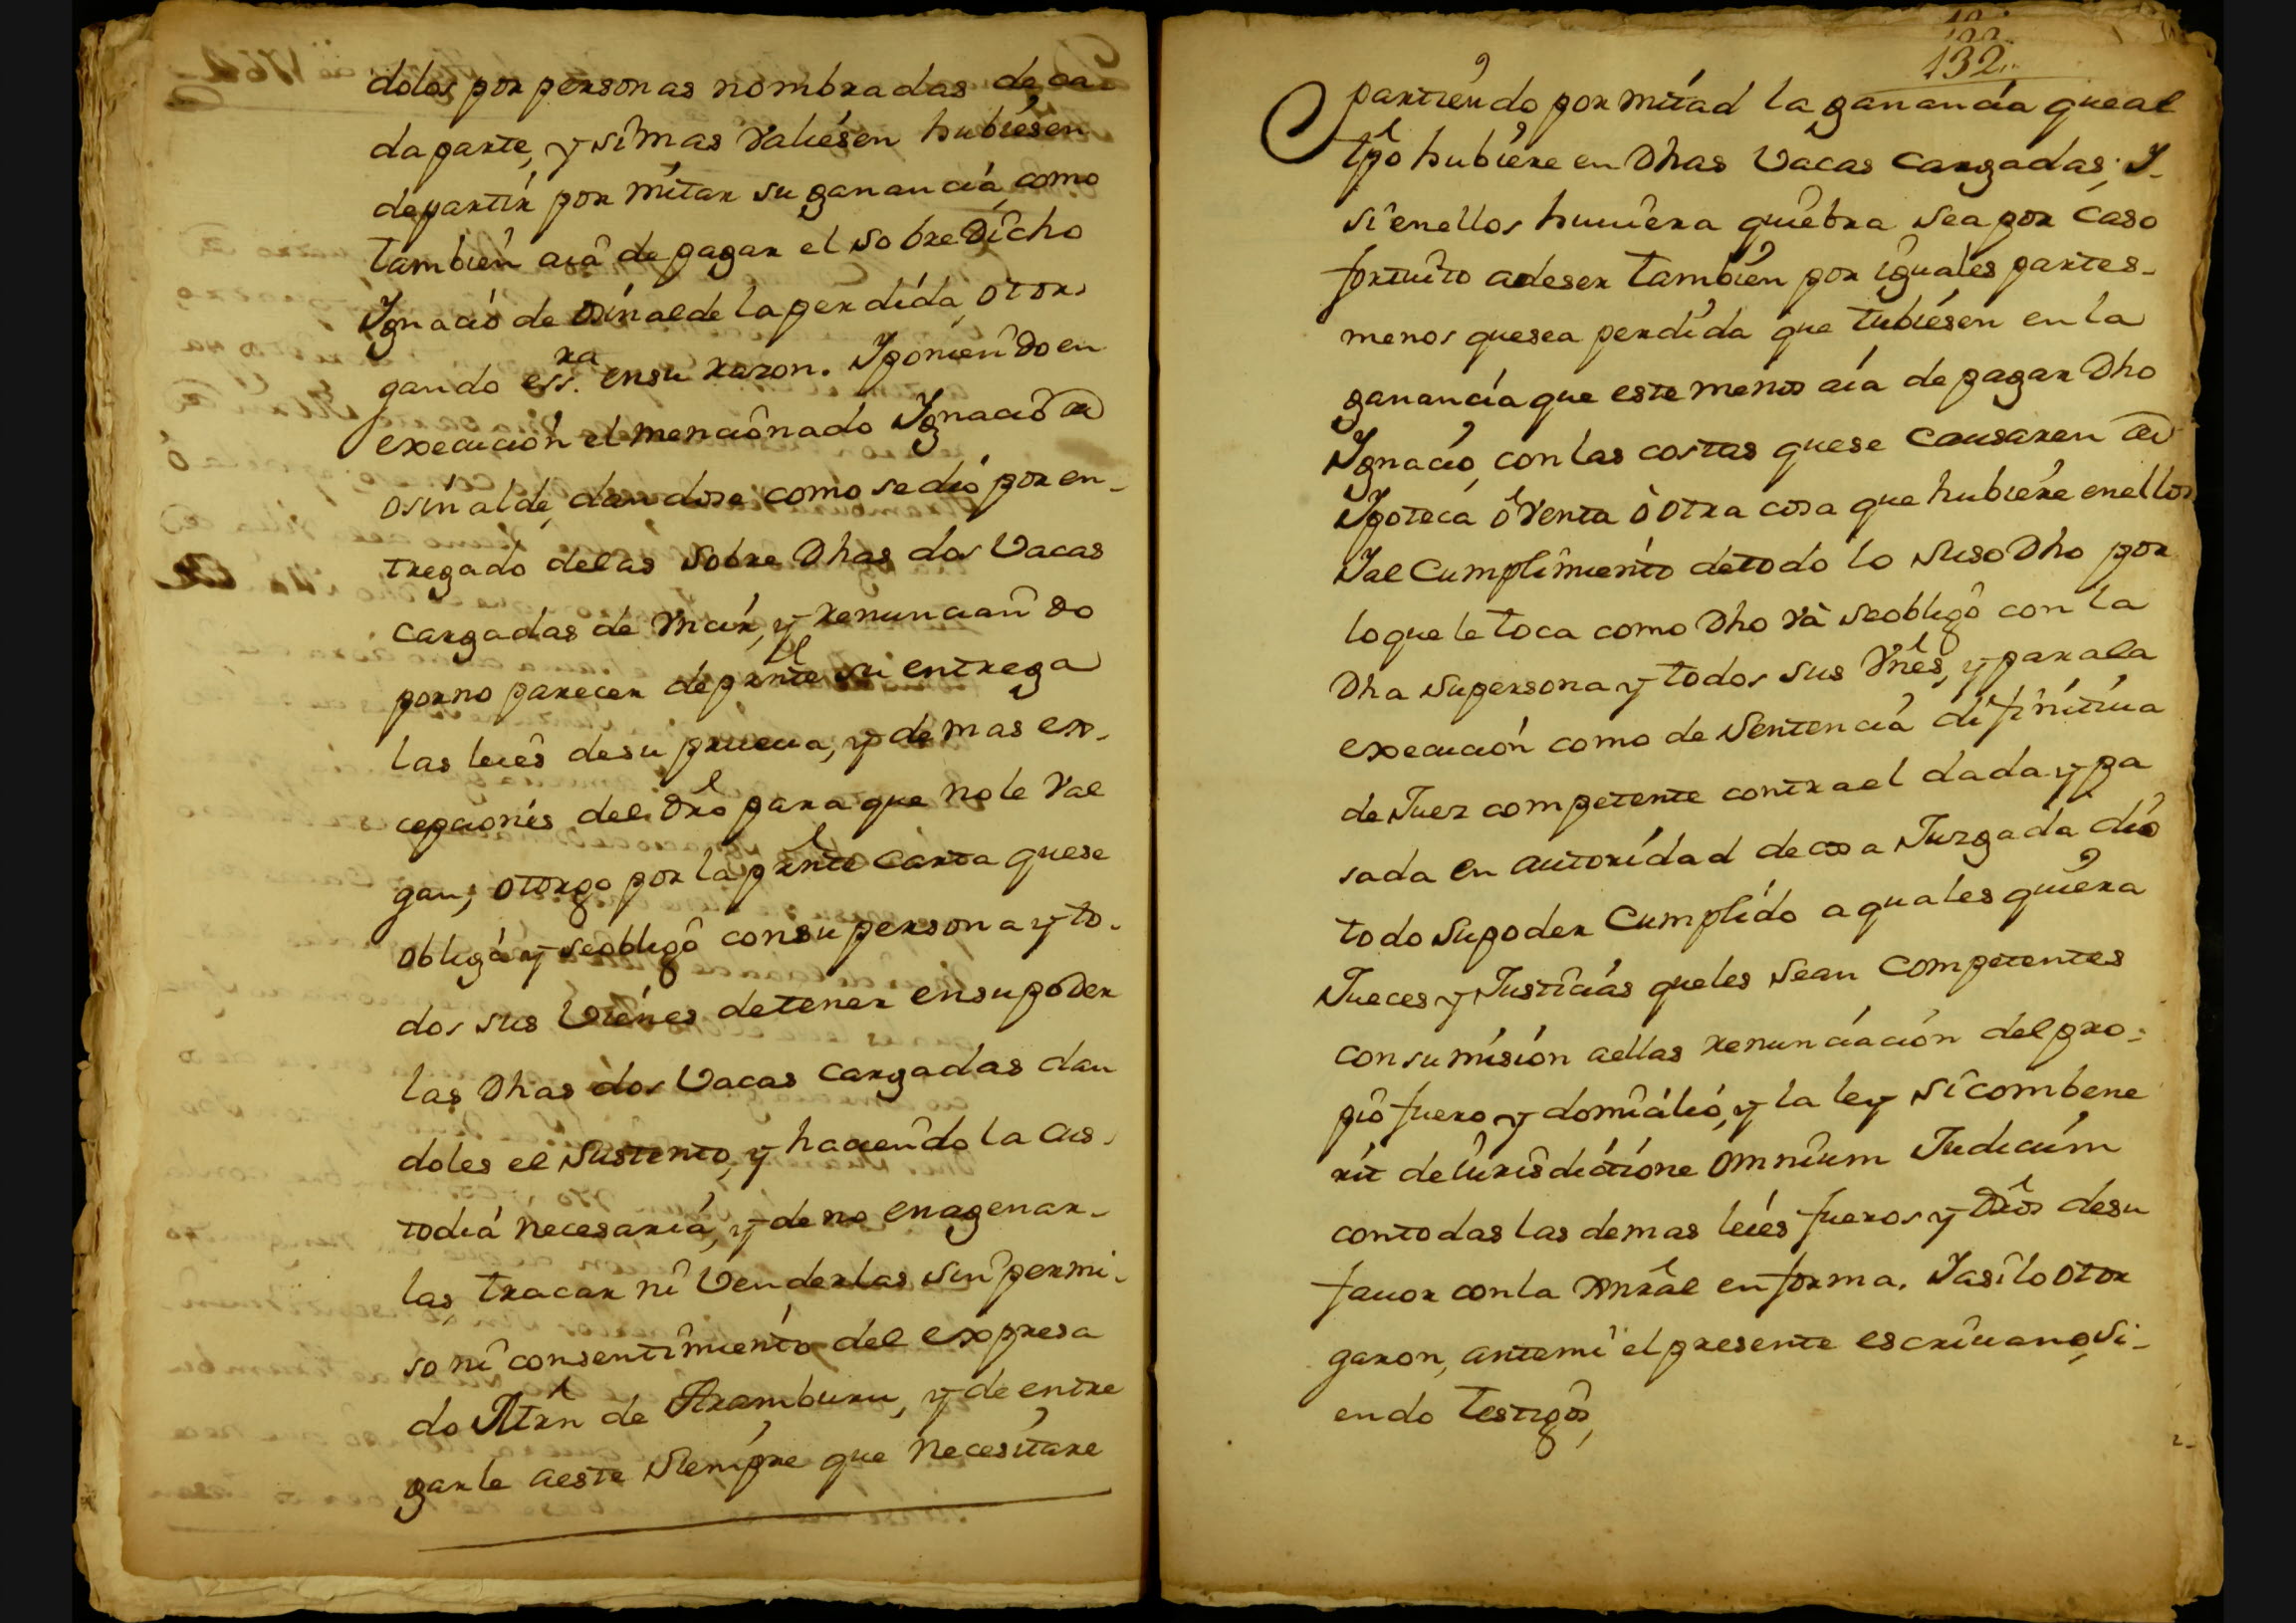 dolos por personas nombradas de ca
da parte, y si mas Valiesen hubiesen
de partir por mitar su ganancia, como
tambien aiâ de pagar el sobre Dicho
Ignació de Osinalde la perdida, otor-
gando essra. en su razon. Y poniendo en
execución el mencionado Ignació de
Osinalde, dandose como se dió por en-
tregado de las sobre Dhas dos Vacas
cargadas de Mair, y renunciando
por no parecer de prnte su entrega
las leies de su prueua, y demas ex-
cepciones del Dro para que no le Val
gan, otorgo por la prnte Carta que se
obliga y se obligô con su persona y to-
dos sus Vienes de tener en su poder
las Dhas dos Vacas Cargadas dan
doles el sustento, y haciendo la cus-
todiá necesariá, y de no enagenar-
las, tracar ni Venderlas sin permi-
so ni consentimiento del expresa
do Mrn de Aramburu, y de entre
garle a este Siempre que necesitare
132
partiendo por mitad la ganancia que al
tpo hubiere en Dhas Vacas Cargadas; Y
si en ellos huuiera quiebra sea por Caso
fortuito a de ser tambien por iguales partes
menos que sea perdida que tubiesen en la
ganancia que este menos aia de pagar Dho
Ignació, con las costas que se Causaren de
Ipoteca ô Venta ô otra cosa que hubiere en ellos
Y al Cumplimiento de todo lo suso Dho por
lo que le toca como Dho Và se obligô con la
Dha su persona y todos sus Vnes, y para la
execución como de Sentenciá difinitiua
de Juez competente contra el dada y pa
sada en autoridad de cosa Juzgada dió
todo su poder Cumplido a quales quiera
Jueces y Justiciás que les Sean Competentes
con sumisión a ellas renunciación del pro-
pio fuero y domicilió, y la ley si combene
rit de iurisdictione omnium Judicum
con todas las demas leiés fueros y Dros de su
fauor con la Gnral en forma. Y asi lo otor
garon, ante mi el presente escriuano, si-
endo testigos,